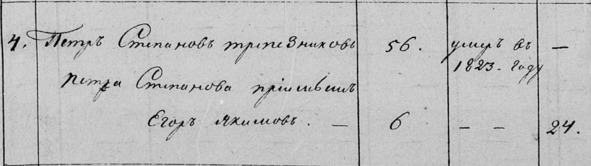 4. Петръ Степановъ трпезниковъ 56. умеръ въ —
1823. году
Петра Степанова пріимышъ
Егоръ Якимовъ. — 6 — — 24.